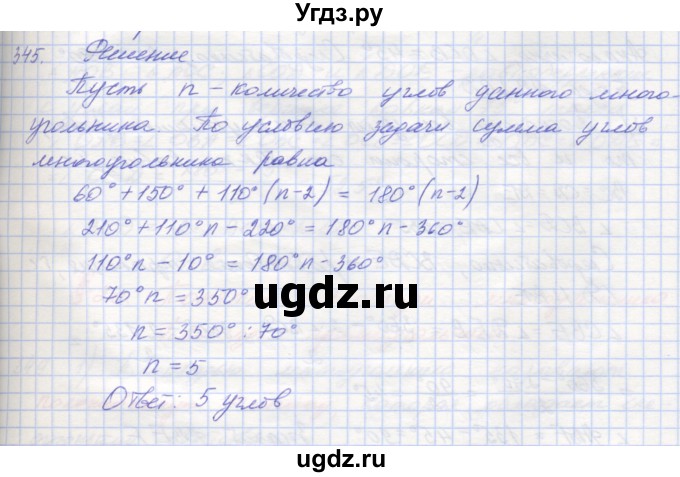 Угдз.ру
345. Решение
Пусть n – количество углов данного много-
угольника. По условию задачи сумма углов
многоугольника равна
60° + 150° + 110° (n-2) = 180° (n-2)
210° + 110°n - 220° = 180°n - 360°
110°n - 10° = 180°n - 360°
70°n = 350°
ugdz.ru
n = 350° : 70°
n = 5
Ответ: 5 углов
ugdz.ru